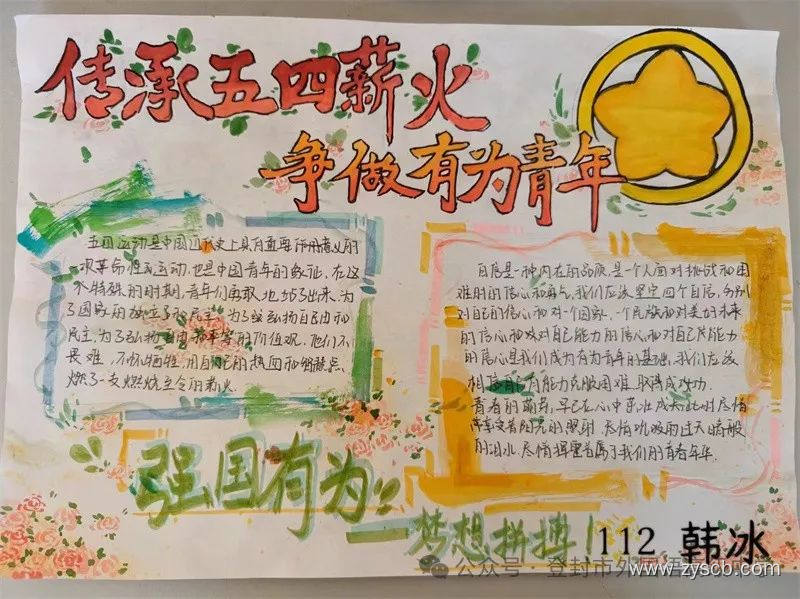 传承五四薪火
争做有为青年
五四运动是中国近代史上具有重要作用意义的
一次革命性运动,也是中国青年的象征,在这
个特殊的时期,青年们勇敢地站了出来,为了
国家的独立和民主,为了弘扬自由和
民主,为了弘扬自由和平等的价值观,他们不
畏难,不怕牺牲,用自己的热血和
燃了一支燃烧至今的薪火
自信是一种内在的品质,是一个人面对挑战和困
难时的信心和勇气,我们应该坚定四个自信,分别
对自己的信心和对一个国家、一个民族和对美好未来
的信心和对自己能力的信心和对自己能力
的信心是我们成为有为青年的基础,我们应该
相信自己有能力克服困难,取得成功.
青春的萌芽,早已在心中茁壮成长,此时尽情
享受着阳光的照射,尽情吮吸的
的泪水,尽情挥霍着属于我们的青春年华.
强国有为
梦想拼搏!
112 韩冰
公众号 登封市外国语
www.zyscb.com